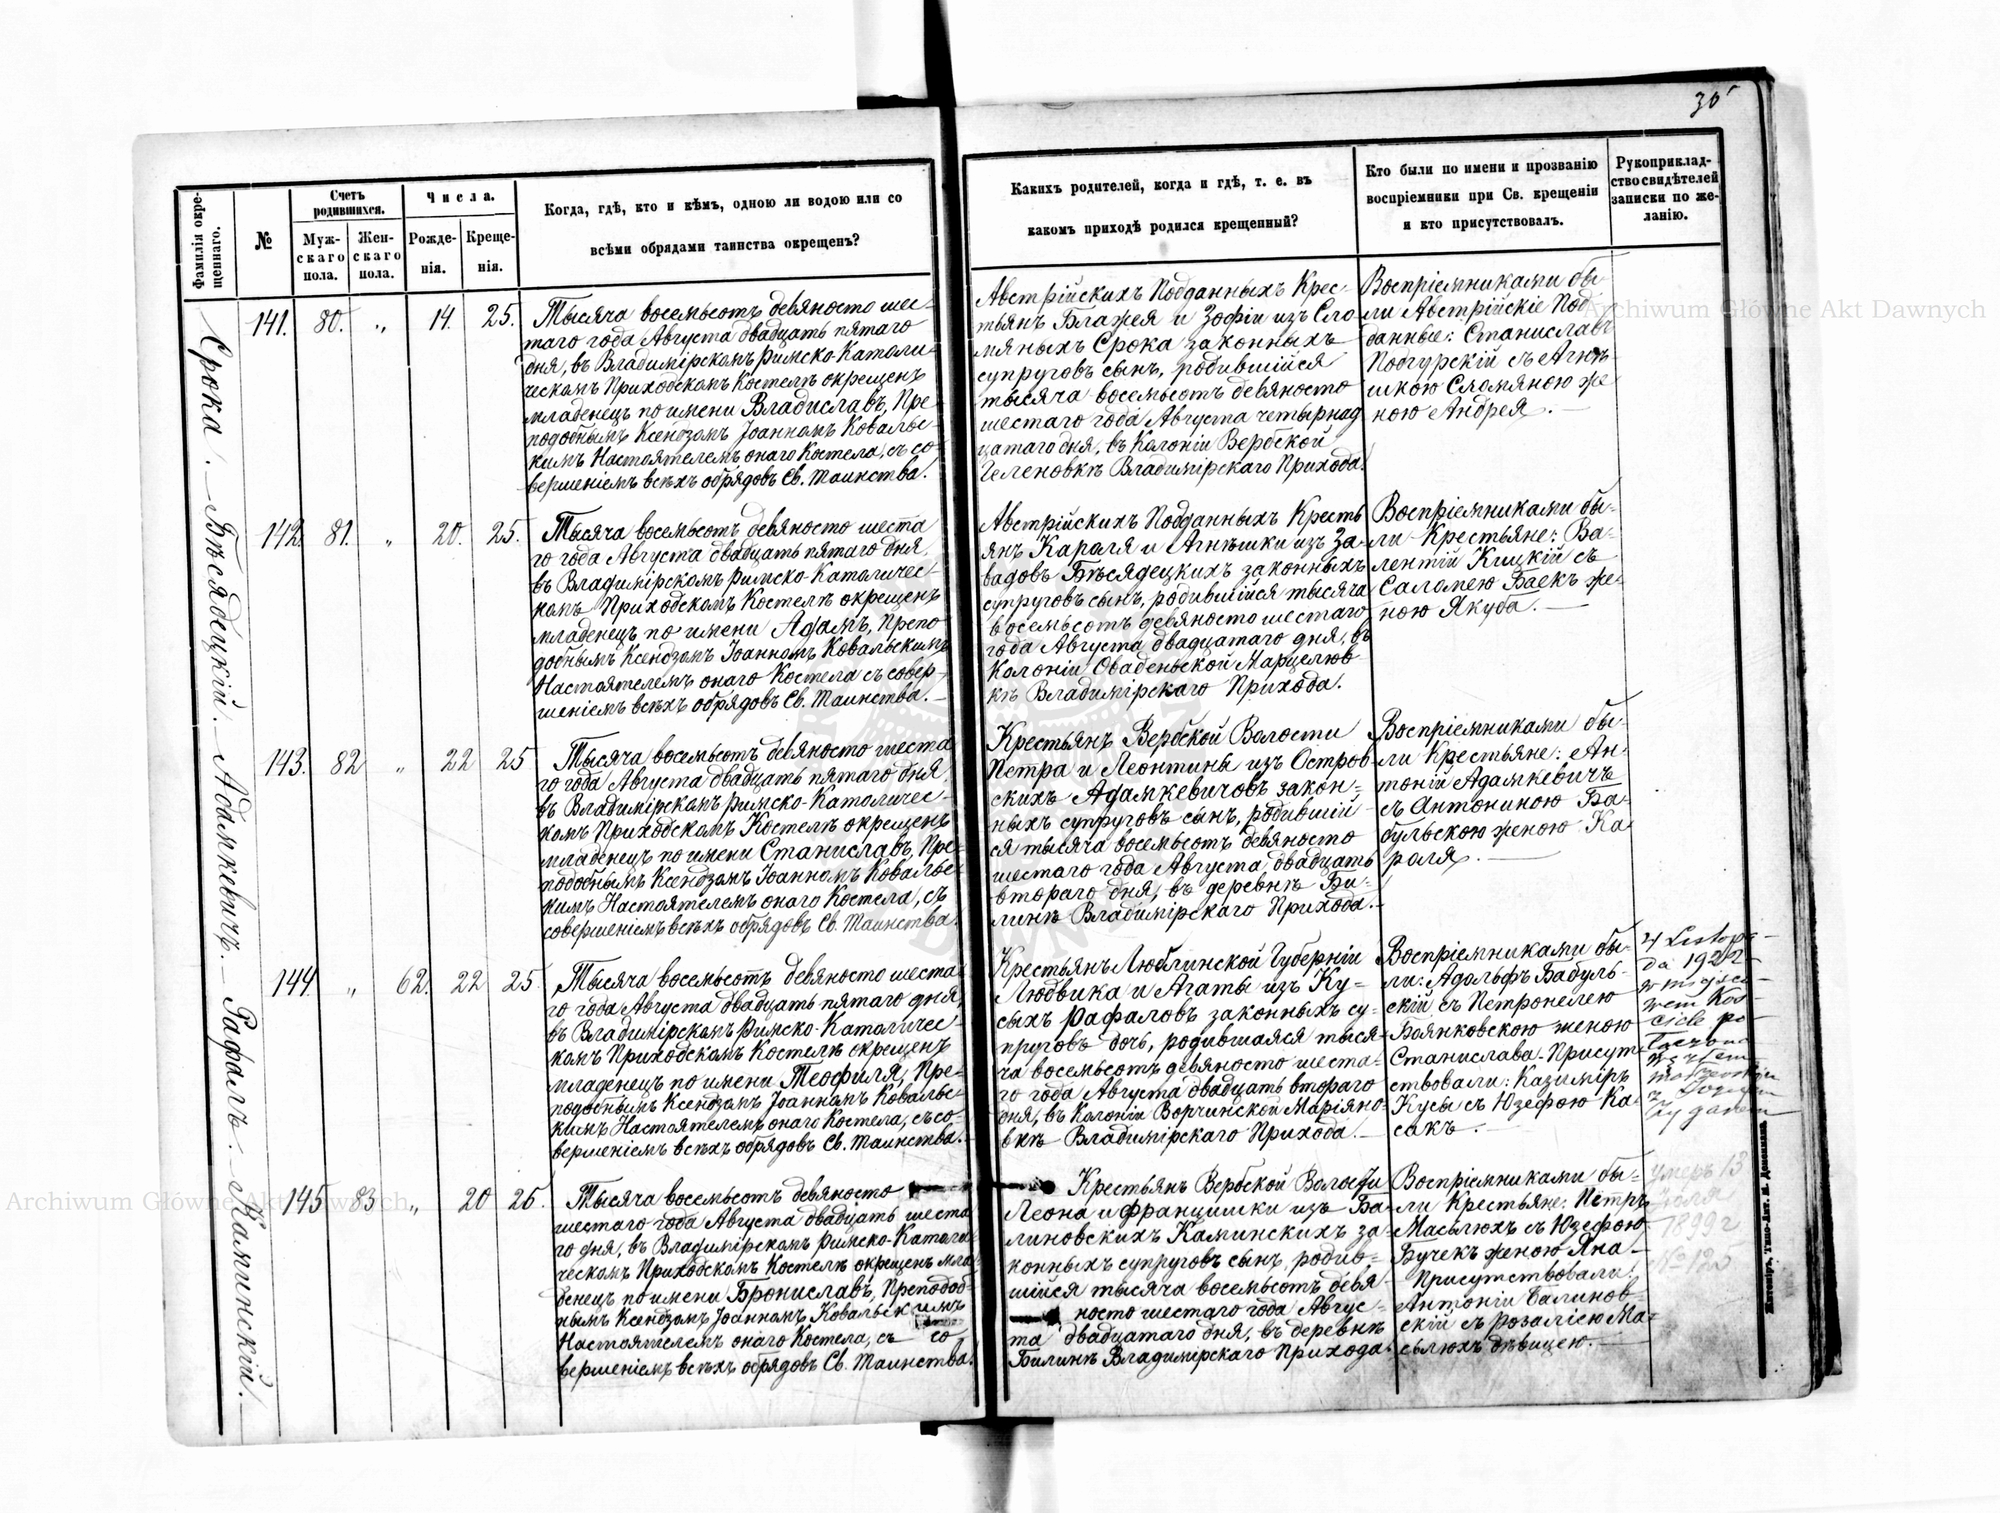 30
Фамилія окре-
щеннаго.
№
Счетъ
родившихся.
Муж-
скаго
пола.
Жен-
скаго
пола.
Числа.
Рожде-
нія.
Креще-
нія.
Когда, гдѣ, кто и кѣмъ, одною ли водою или со
всѣми обрядами таинства окрещенъ?
Какихъ родителей, когда и гдѣ, т. е. въ
какомъ приходѣ родился крещенный?
Кто были по имени и прозванію
воспріемники при Св. крещеніи
и кто присутствовалъ.
Рукоприклад-
ство свидѣтелей
записки по же-
ланію.
Срока. — Бѣсядецкій. — Адамкевичъ. — Рафалъ. — Каминскій. —
141. 80. „ 14. 25.
Тысяча восемьсотъ девяносто шес-
таго года Августа двадцать пятаго
дня, въ Владимірскомъ Римско-Католи-
ческомъ Приходскомъ Костелѣ окрещенъ
младенецъ по имени Владиславъ, Пре-
подобнымъ Ксендзомъ Іоанномъ Ковальс-
кимъ Настоятелемъ онаго Костела, съ со-
вершеніемъ всѣхъ обрядовъ Св. Таинства.
Австрійскихъ Подданныхъ Крес-
тьянъ Блажея и Зофіи изъ Сло
мяныхъ Срока законныхъ
супруговъ сынъ, родившійся
тысяча восемьсотъ девяносто
шестаго года Августа четырнад
цатаго дня, въ Колоніи Вербской
Геленовкѣ Владимірскаго Прихода.
Воспріемниками бы-
ли Австрійскіе Под-
данные: Станиславъ
Подгурскій съ Агнѣ-
шкою Сломяною же
ною Андрея. —
142. 81. „ 20. 25.
Тысяча восемьсотъ девяносто шеста
го года Августа двадцать пятаго дня,
въ Владимірскомъ Римско-Католичес-
комъ Приходскомъ Костелѣ окрещенъ
младенецъ по имени Адамъ, Препо
добнымъ Ксендзомъ Іоанномъ Ковальскимъ
Настоятелемъ онаго Костела съ совер-
шеніемъ всѣхъ обрядовъ Св. Таинства. —
Австрійскихъ Подданныхъ Кресть
янъ Кароля и Агнѣшки изъ За-
вадовъ Бѣсядецкихъ законныхъ
супруговъ сынъ, родившійся тысяча
восемьсотъ девяносто шестаго
года Августа двадцатаго дня, въ
Колоніи Оваденьской Марцелюв-
кѣ Владимірскаго Прихода.
Воспріемниками бы-
ли Крестьяне: Ва-
лентій Кицкій съ
Саломею Баекъ же-
ною Якуба. —
143. 82 „ 22 25
Тысяча восемьсотъ девяносто шеста
го года Августа двадцать пятаго дня,
въ Владимірскомъ Римско-Католичес-
комъ Приходскомъ Костелѣ окрещенъ
младенецъ по имени Станиславъ, Пре-
подобнымъ Ксендзомъ Іоанномъ Ковальс-
кимъ Настоятелемъ онаго Костела, съ
совершеніемъ всѣхъ обрядовъ Св. Таинства.
Крестьянъ Вербской Волости
Петра и Леонтины изъ Остров
скихъ Адамкевичовъ закон-
ныхъ супруговъ сынъ, родившій-
ся тысяча восемьсотъ девяносто
шестаго года Августа двадцать
втораго дня, въ деревнѣ Би-
линѣ Владимірскаго Прихода. —
Воспріемниками бы-
ли Крестьяне: Ан-
тоній Адамкевичъ
съ Антониною Ба-
бульскою женою Ка
роля. —
144. „ 62. 22 25.
Тысяча восемьсотъ девяносто шеста-
го года Августа двадцать пятаго дня,
въ Владимірскомъ Римско-Католичес-
комъ Приходскомъ Костелѣ окрещенъ
младенецъ по имени Теофиля, Пре-
подобнымъ Ксендзомъ Іоанномъ Ковальс-
кимъ Настоятелемъ онаго Костела, съ со-
вершеніемъ всѣхъ обрядовъ Св. Таинства. —
Крестьянъ Люблинской Губерніи
Людвика и Агаты изъ Ку-
сыхъ Рафаловъ законныхъ су-
пруговъ дочь, родившаяся тыся-
ча восемьсотъ девяносто шеста-
го года Августа двадцать втораго
дня, въ Колоніи Ворчинской Маріяно-
вкѣ Владимірскаго Прихода. —
Воспріемниками бы-
ли: Адольфъ Бабуль-
скій съ Петронелею
Боянковскою женою
Станислава. Присут-
ствовали: Казиміръ
Кусы съ Юзефою Ка
сакъ. —
4 Listopa-
da 1922
w miejsco-
wem Koś-
ciele po-
łączona
węzłem
małżeńskim
z Józefem
145 83 „ 20 26.
Тысяча восемьсотъ девяносто
шестаго года Августа двадцать шеста
го дня, въ Владимірскомъ Римско-Католи-
ческомъ Приходскомъ Костелѣ окрещенъ мла
денецъ по имени Брониславъ, Преподоб-
нымъ Ксендзомъ Іоанномъ Ковальскимъ
Настоятелемъ онаго Костела, съ со-
вершеніемъ всѣхъ обрядовъ Св. Таинства.
Крестьянъ Вербской Волости
Леона и Францишки изъ Ба-
линовскихъ Каминскихъ за-
конныхъ супруговъ сынъ, родив-
шійся тысяча восемьсотъ девя-
носто шестаго года Авгус-
та двадцатаго дня, въ деревнѣ
Билинѣ Владимірскаго Прихода.
Воспріемниками бы-
ли Крестьяне: Петръ
Масьлюхъ съ Юзефою
Бучекъ женою Яна —
Присутствовали:
Антоніи Балинов-
скій съ Розаліею Ма-
сьлюхъ дѣвицею. —
умеръ 13
Іюля
1899 г
№ 125
Житоміръ, Типо-Лит. М. Дененмана.
Archiwum Główne Akt Dawnych
Archiwum Główne Akt Dawnych